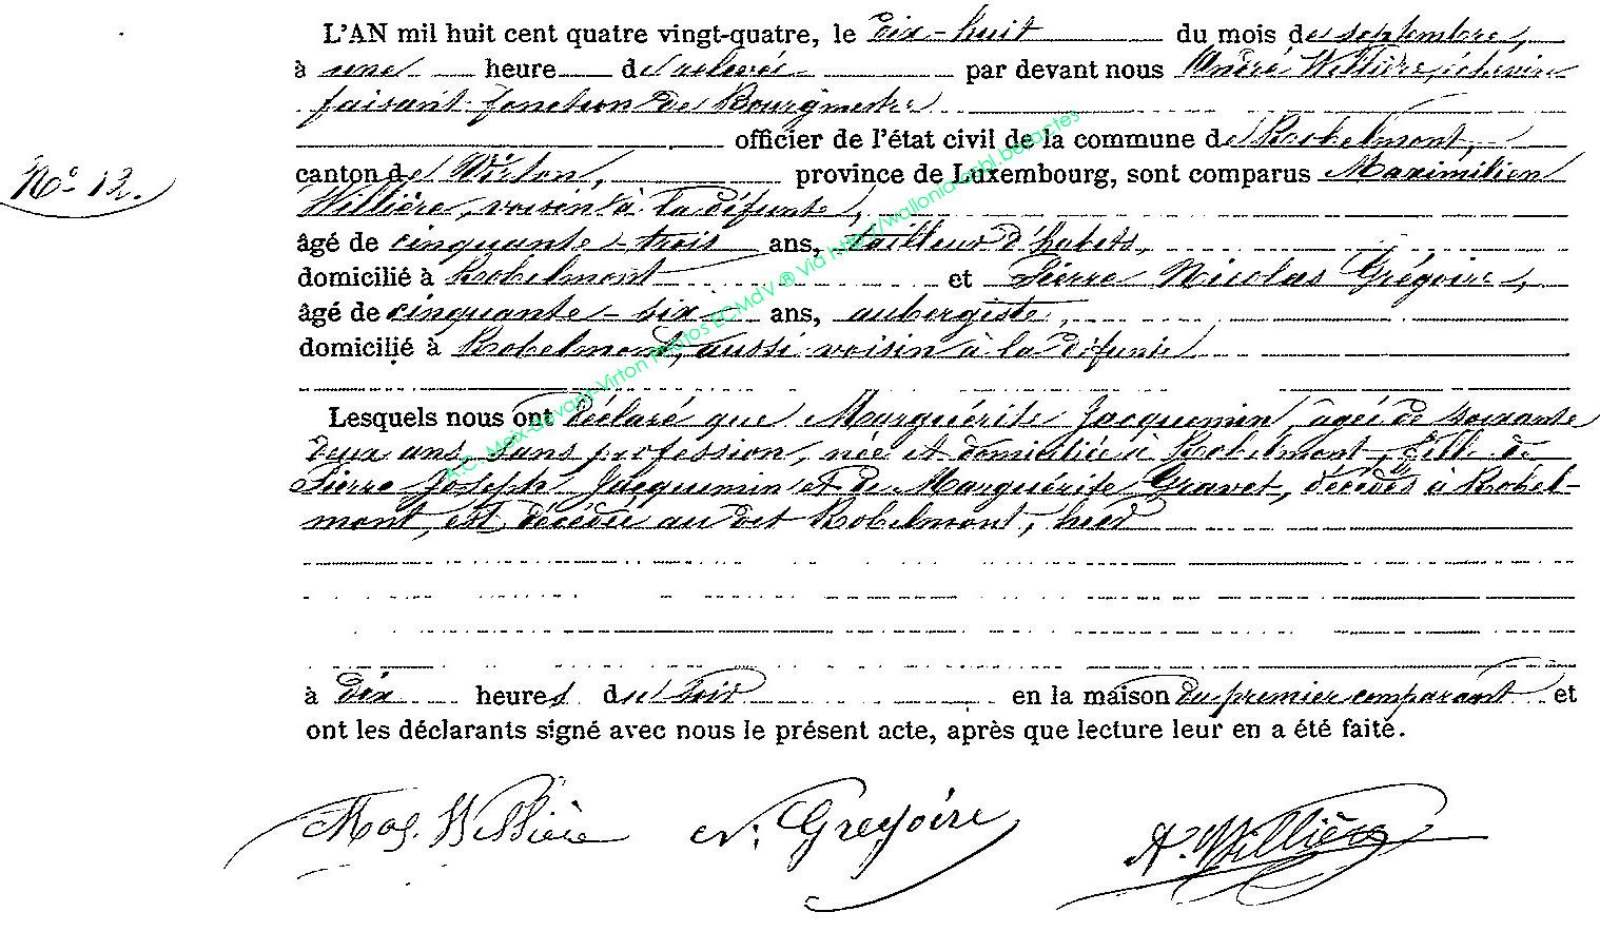 L'AN mil huit cent quatre vingt-quatre, le dix-huit du mois de septembre,
à une heure de relevée par devant nous André Willière, échevin
faisant fonction de Bourgmestre
officier de l'état civil de la commune de Robelmont,
N° 12.
canton de Virton, province de Luxembourg, sont comparus Maximilien
Willière, voisin à la défunte,
âgé de cinquante-trois ans, tailleur d'habits,
domicilié à Robelmont et Pierre Nicolas Grégoire,
âgé de cinquante-six ans, aubergiste,
domicilié à Robelmont, aussi voisin à la défunte
Lesquels nous ont déclaré que Marguérite Jacquemin, agée de soixante
deux ans, sans profession, née et domiciliée à Robelmont, fille de
Pierre Joseph Jacquemin et de Marguérite Gravet, décédés à Robel-
mont, est décédée au dit Robelmont, hier
à dix heures du soir en la maison du premier comparant et
ont les déclarants signé avec nous le présent acte, après que lecture leur en a été faite.
Max. Willière N. Gregoire A. Willière
A.C. Meix-devant-Virton Photos ECMdV ® Via http://wallonia-asbl.be/actes